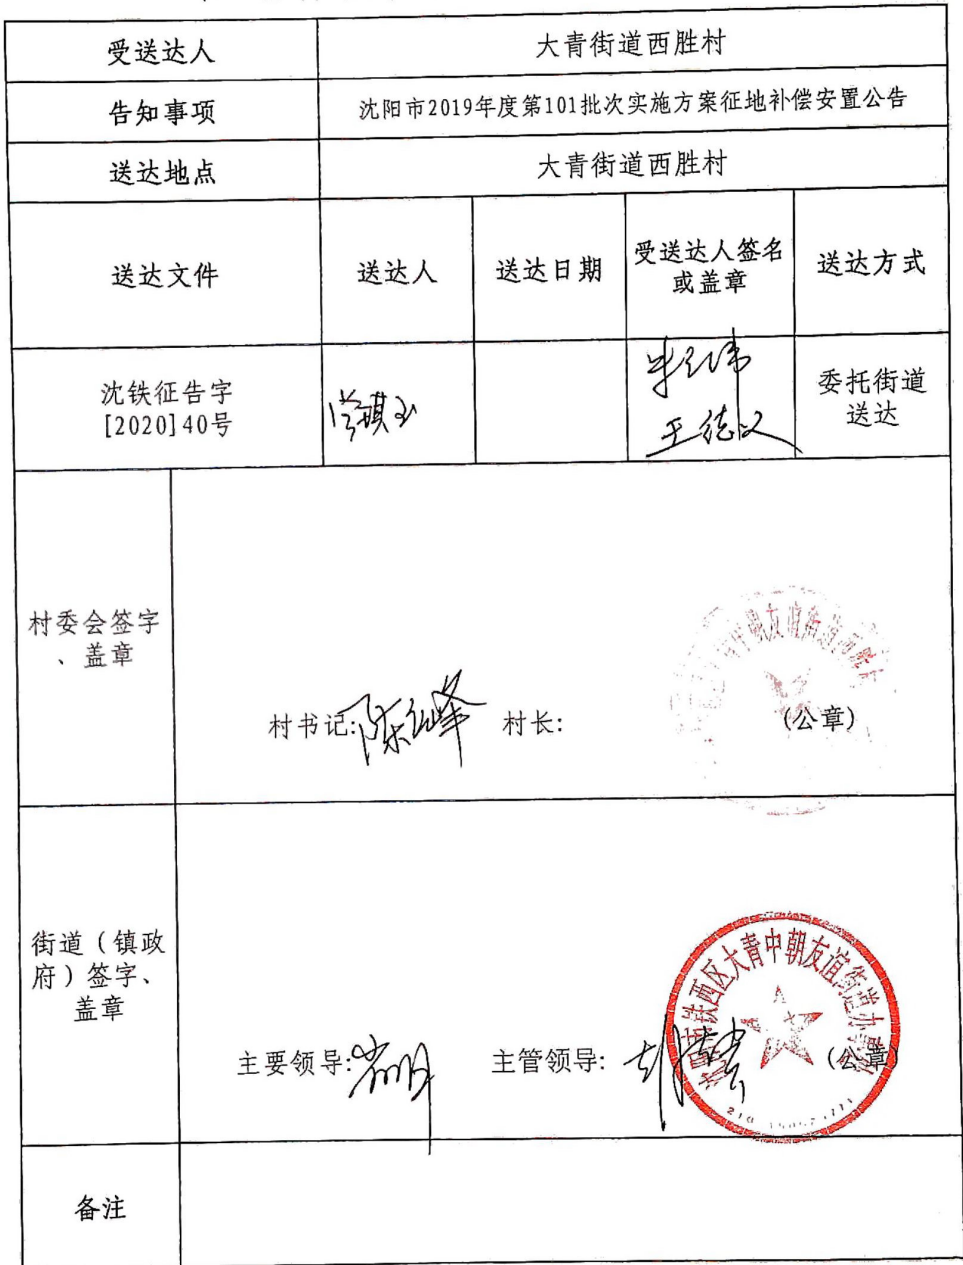 受送达人
大青街道西胜村
告知事项
沈阳市2019年度第101批次实施方案征地补偿安置公告
送达地点
大青街道西胜村
送达文件
送达人
送达日期
受送达人签名
或盖章
送达方式
沈铁征告字
[2020]40号
王德义
委托街道
送达
村委会签字
、盖章
村书记:
村长:
(公章)
街道（镇政
府）签字、
盖章
铁西区大青中朝友谊街道办事处
主要领导:
主管领导:
(公章)
备注